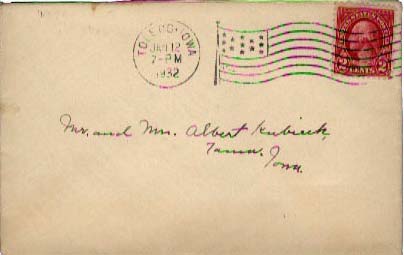 TOLEDO, IOWA
JAN 12
7-PM
1932
UNITED STATES POSTAGE
2 CENTS 2
Mr. and Mrs. Albert Kubicek,
Tama,
Iowa.